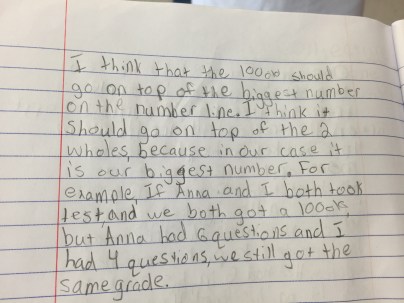 I think that the 100% should
go on top of the biggest number
on the number line. I think it
should go on top of the 2
wholes, because in our case it
is our biggest number. For
example, If Anna and I both took
test, and we both got a 100%,
but Anna had 6 questions and I
had 4 questions, we still got the
same grade.